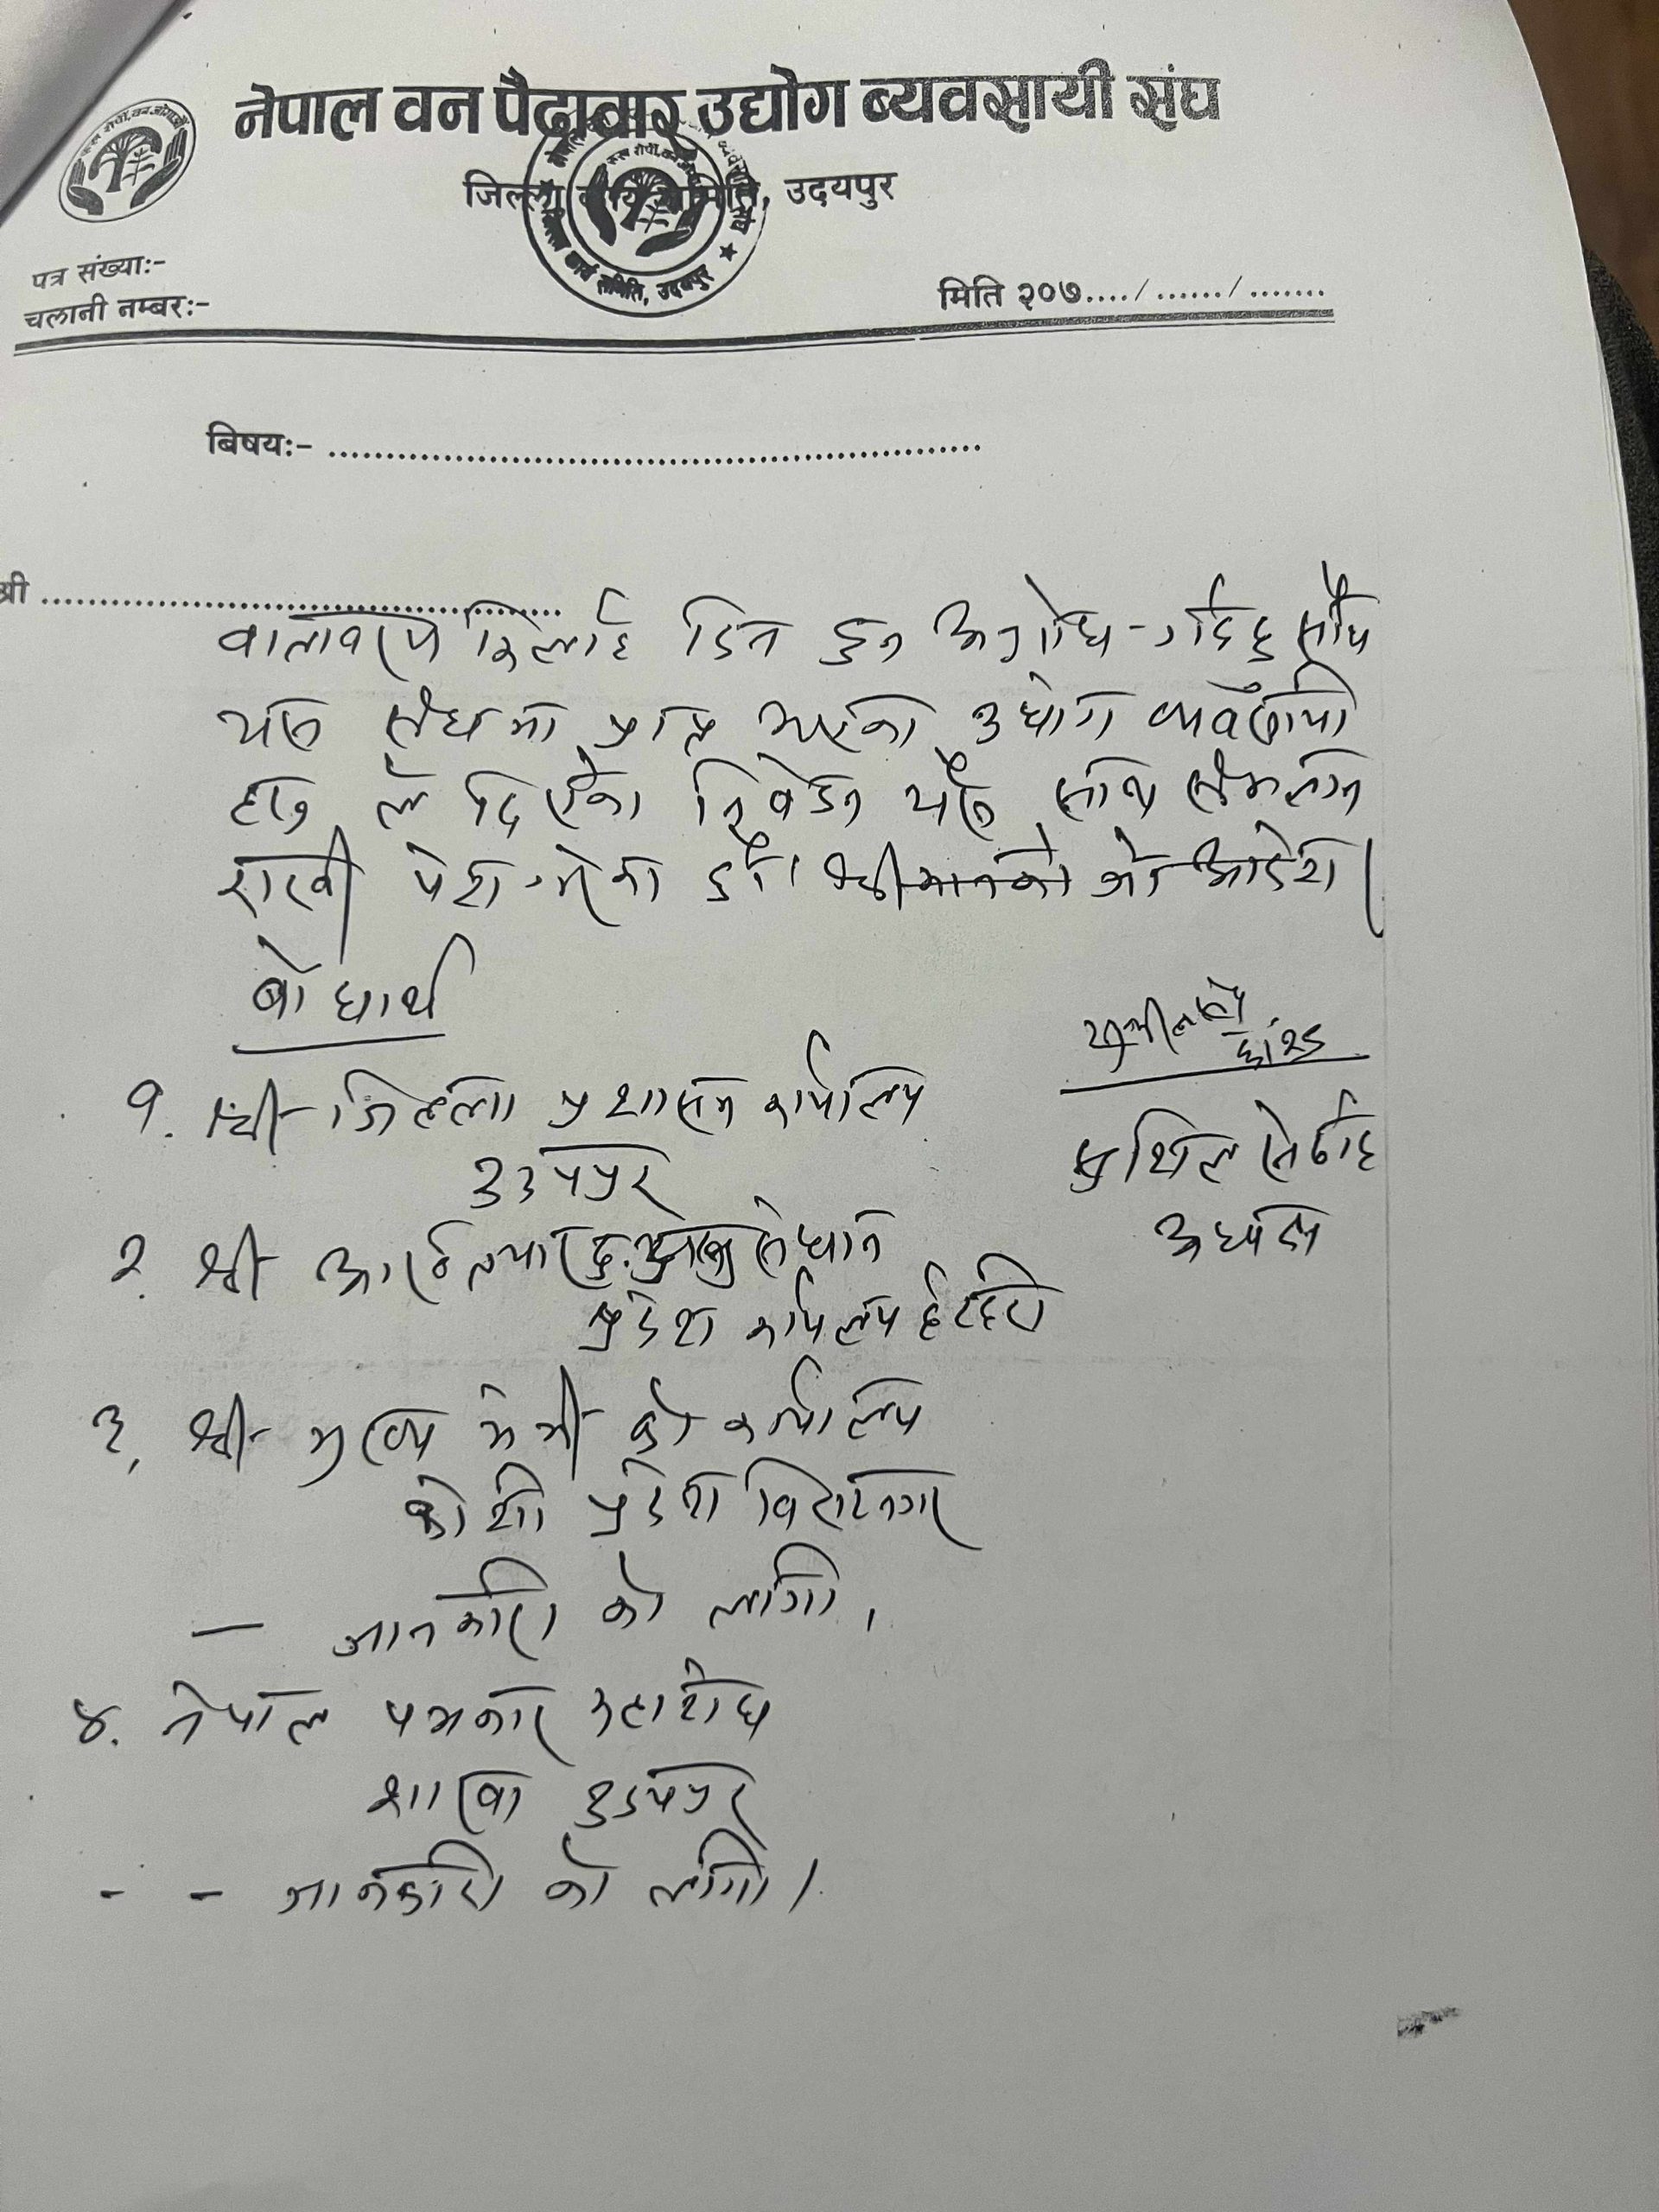 नेपाल वन पैदावार उद्योग ब्यवसायी संघ
जिल्ला कार्य समिति, उदयपुर
पत्र संख्या:-
चलानी नम्बर:-
मिति २०७..../ ....../ .......
बिषय:- ........................................................
श्री ............................................
वातावरण मिलाई दिन हुन अनुरोध गर्दछु साथै
यस संघमा प्राप्त भएका उद्योग व्यवसायी
हरु ले दिएका निवेदन यसै साथ संलग्न
राखी पेश गरेका छौं। श्रीमानको जो आदेश।
बोधार्थ
१. श्री जिल्ला प्रशासन कार्यालय
उदयपुर
अध्यक्ष
२. श्री अख्तियार दु. अनुसन्धान
प्रदेश कार्यालय ईटहरी
३. श्री मुख्य मन्त्री को कार्यालय
कोशी प्रदेश विराटनगर
— जानकारी को लागी।
४. नेपाल पत्रकार महासंघ
शाखा उदयपुर
- - जानकारी को लागी।